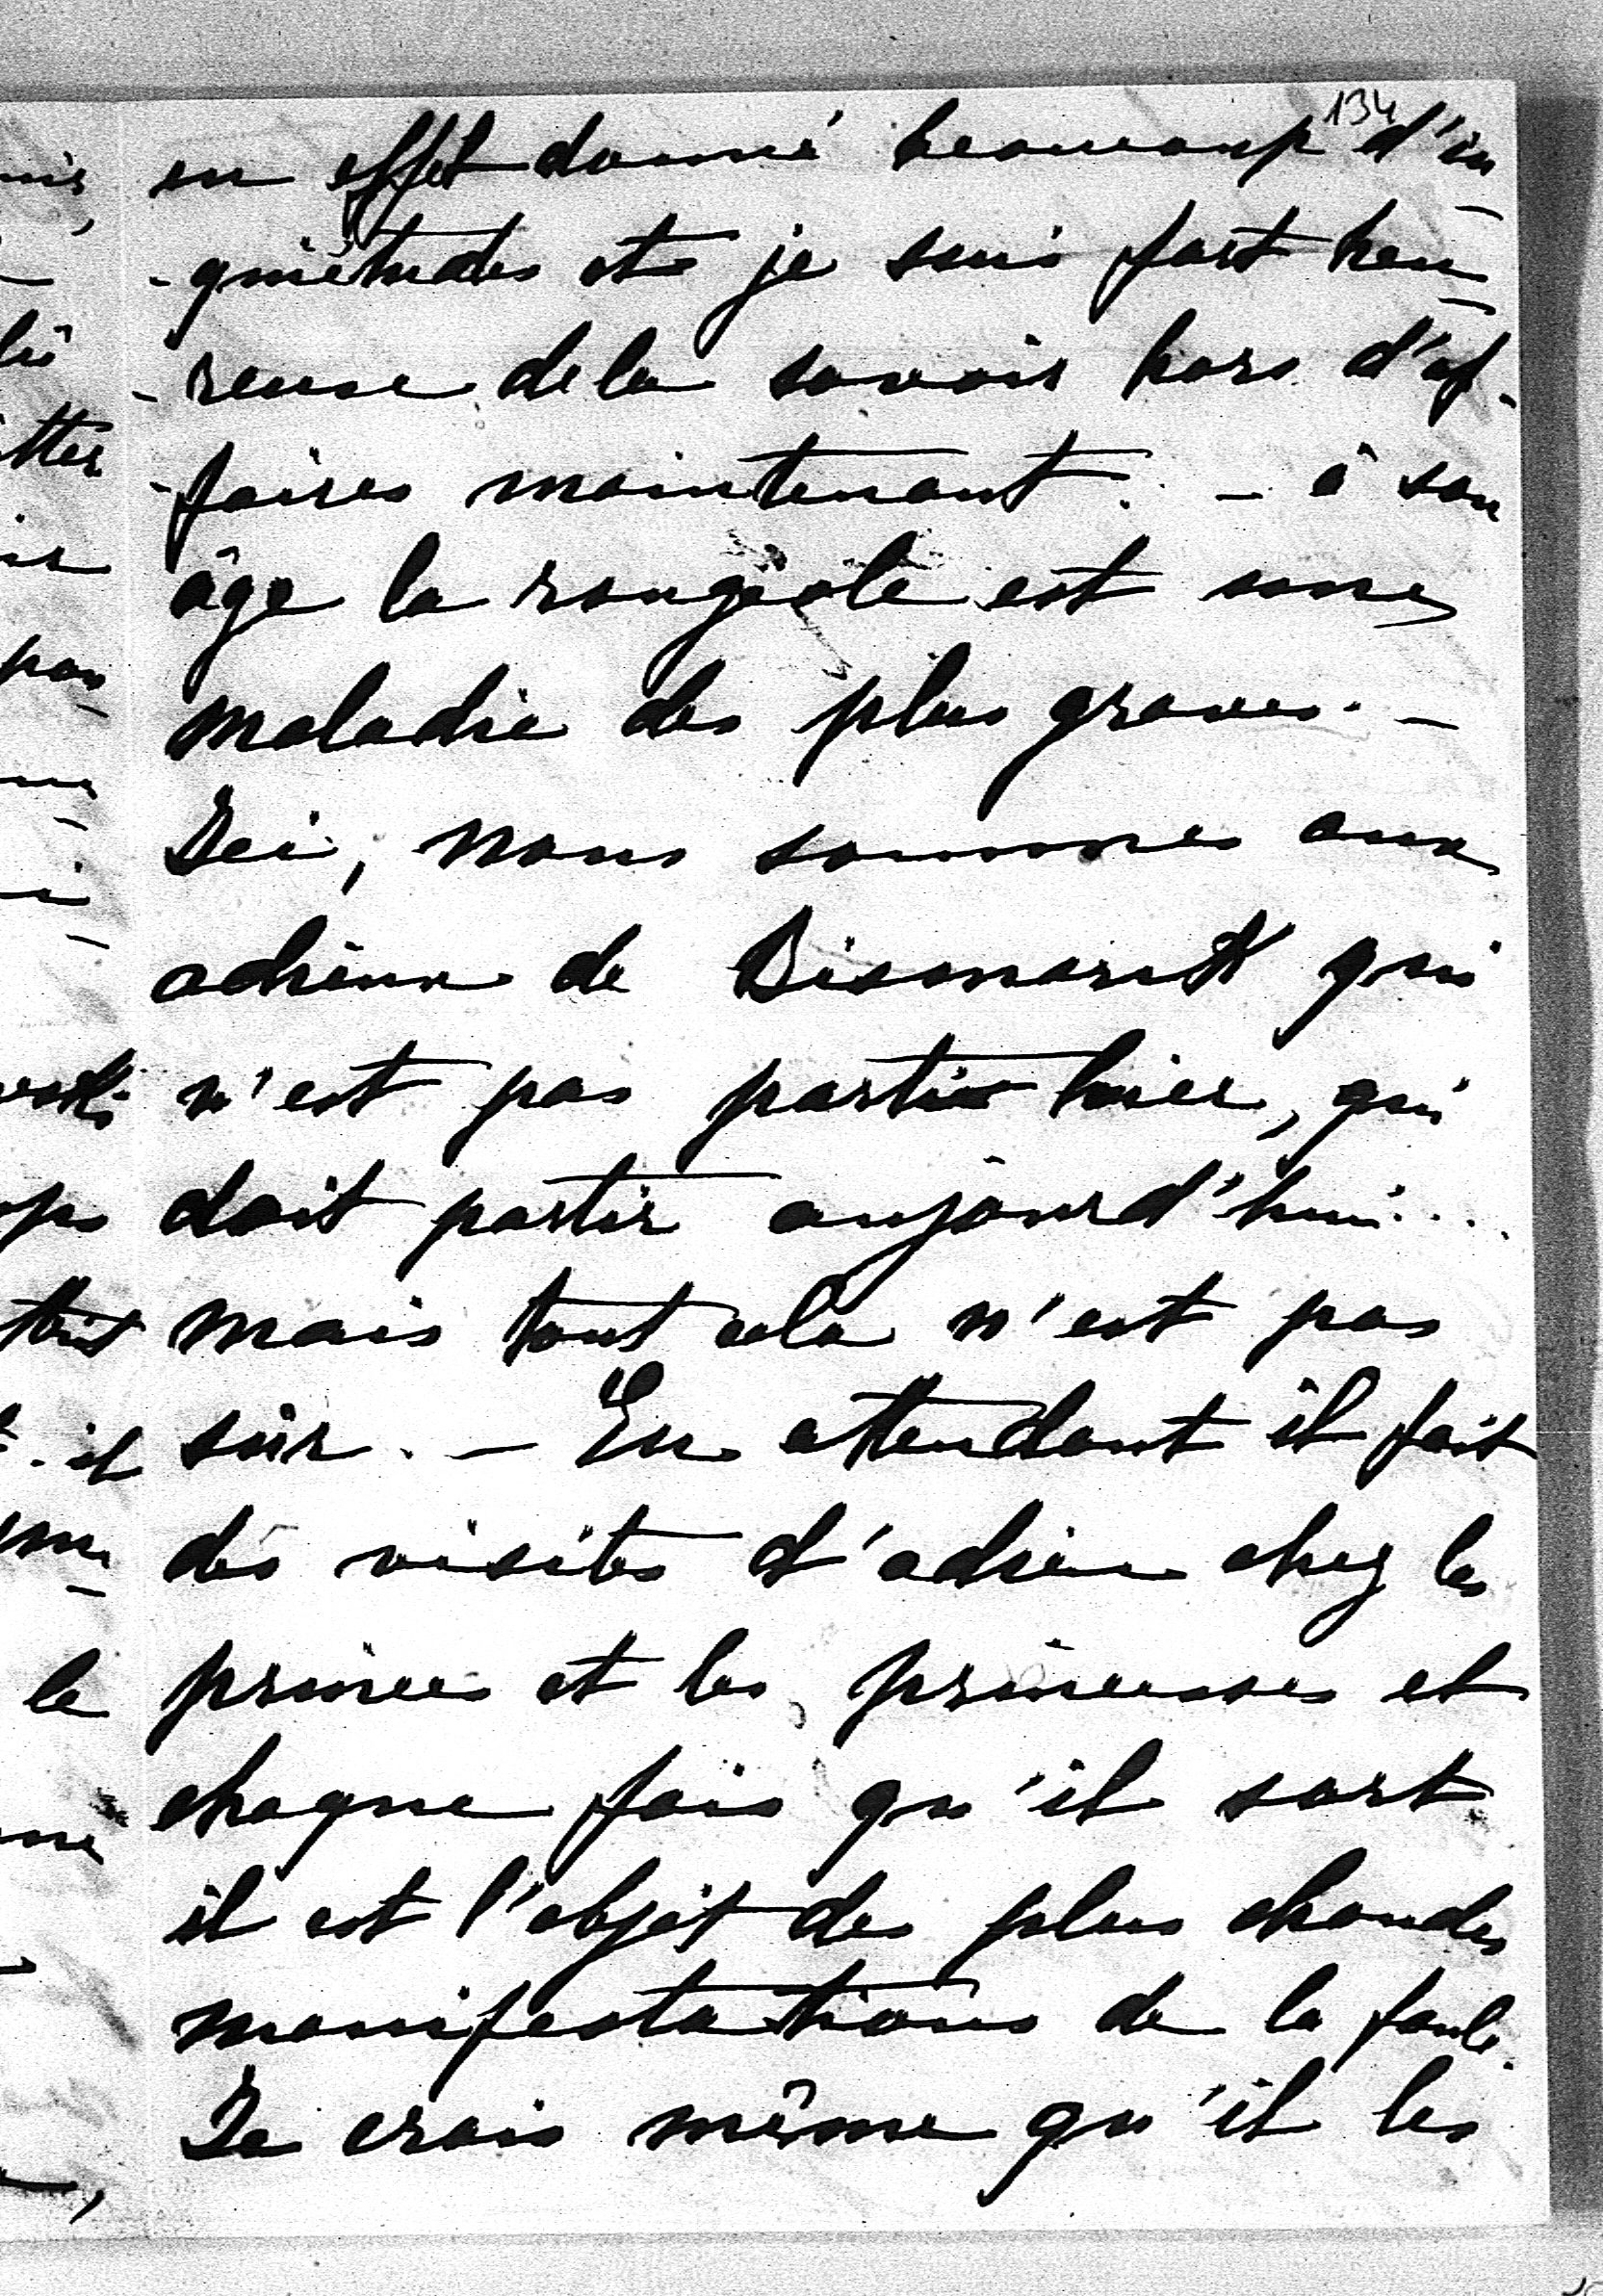 134
en effet donné beaucoup d'in-
-quiétudes et je suis fort heu-
-reuse de la savoir hors d'af-
-faires maintenant. - à son
âge la rougeole est une
maladie des plus graves. -
Ici, nous sommes aux
adieux de Bismarck qui
n'est pas parti hier, qui
doit partir aujourd'hui...
mais tout cela n'est pas
sûr. - En attendant il fait
des visites d'adieu chez les
princes et les princesses et
chaque fois qu'il sort
il est l'objet des plus chaudes
manifestations de la foule.
Je crois même qu'il les